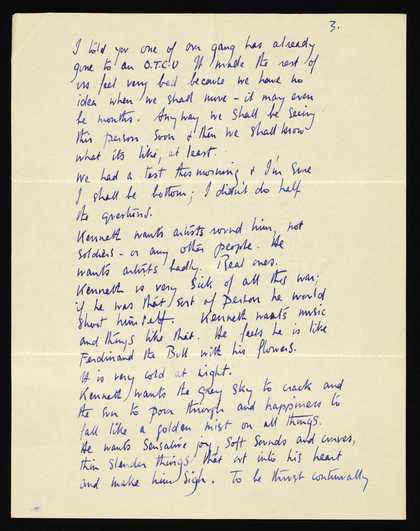 3.
I told you one of our gang has already
gone to an O.T.C.U It made the rest of
us feel very bad because we have no
idea when we shall move - it may even
be months. Anyway we shall be seeing
this person soon & then we shall know
what its like, at least.
We had a test this morning & I'm sure
I shall be bottom; I didn't do half
the questions.
Kenneth wants artists round him, not
soldiers - or any other people. He
wants artists badly. Real ones.
Kenneth is very sick of all this war;
if he was that sort of person he would
shoot himself. Kenneth wants music
and things like that. He feels he is like
Ferdinand the Bull with his flowers.
It is very cold at night.
Kenneth wants the grey sky to crack and
the sun to pour through and happiness to
fall like a golden mist on all things.
He wants sensative joy, soft sounds and curves,
thin slender things that cut into his heart
and make him sigh. To be thrust continually